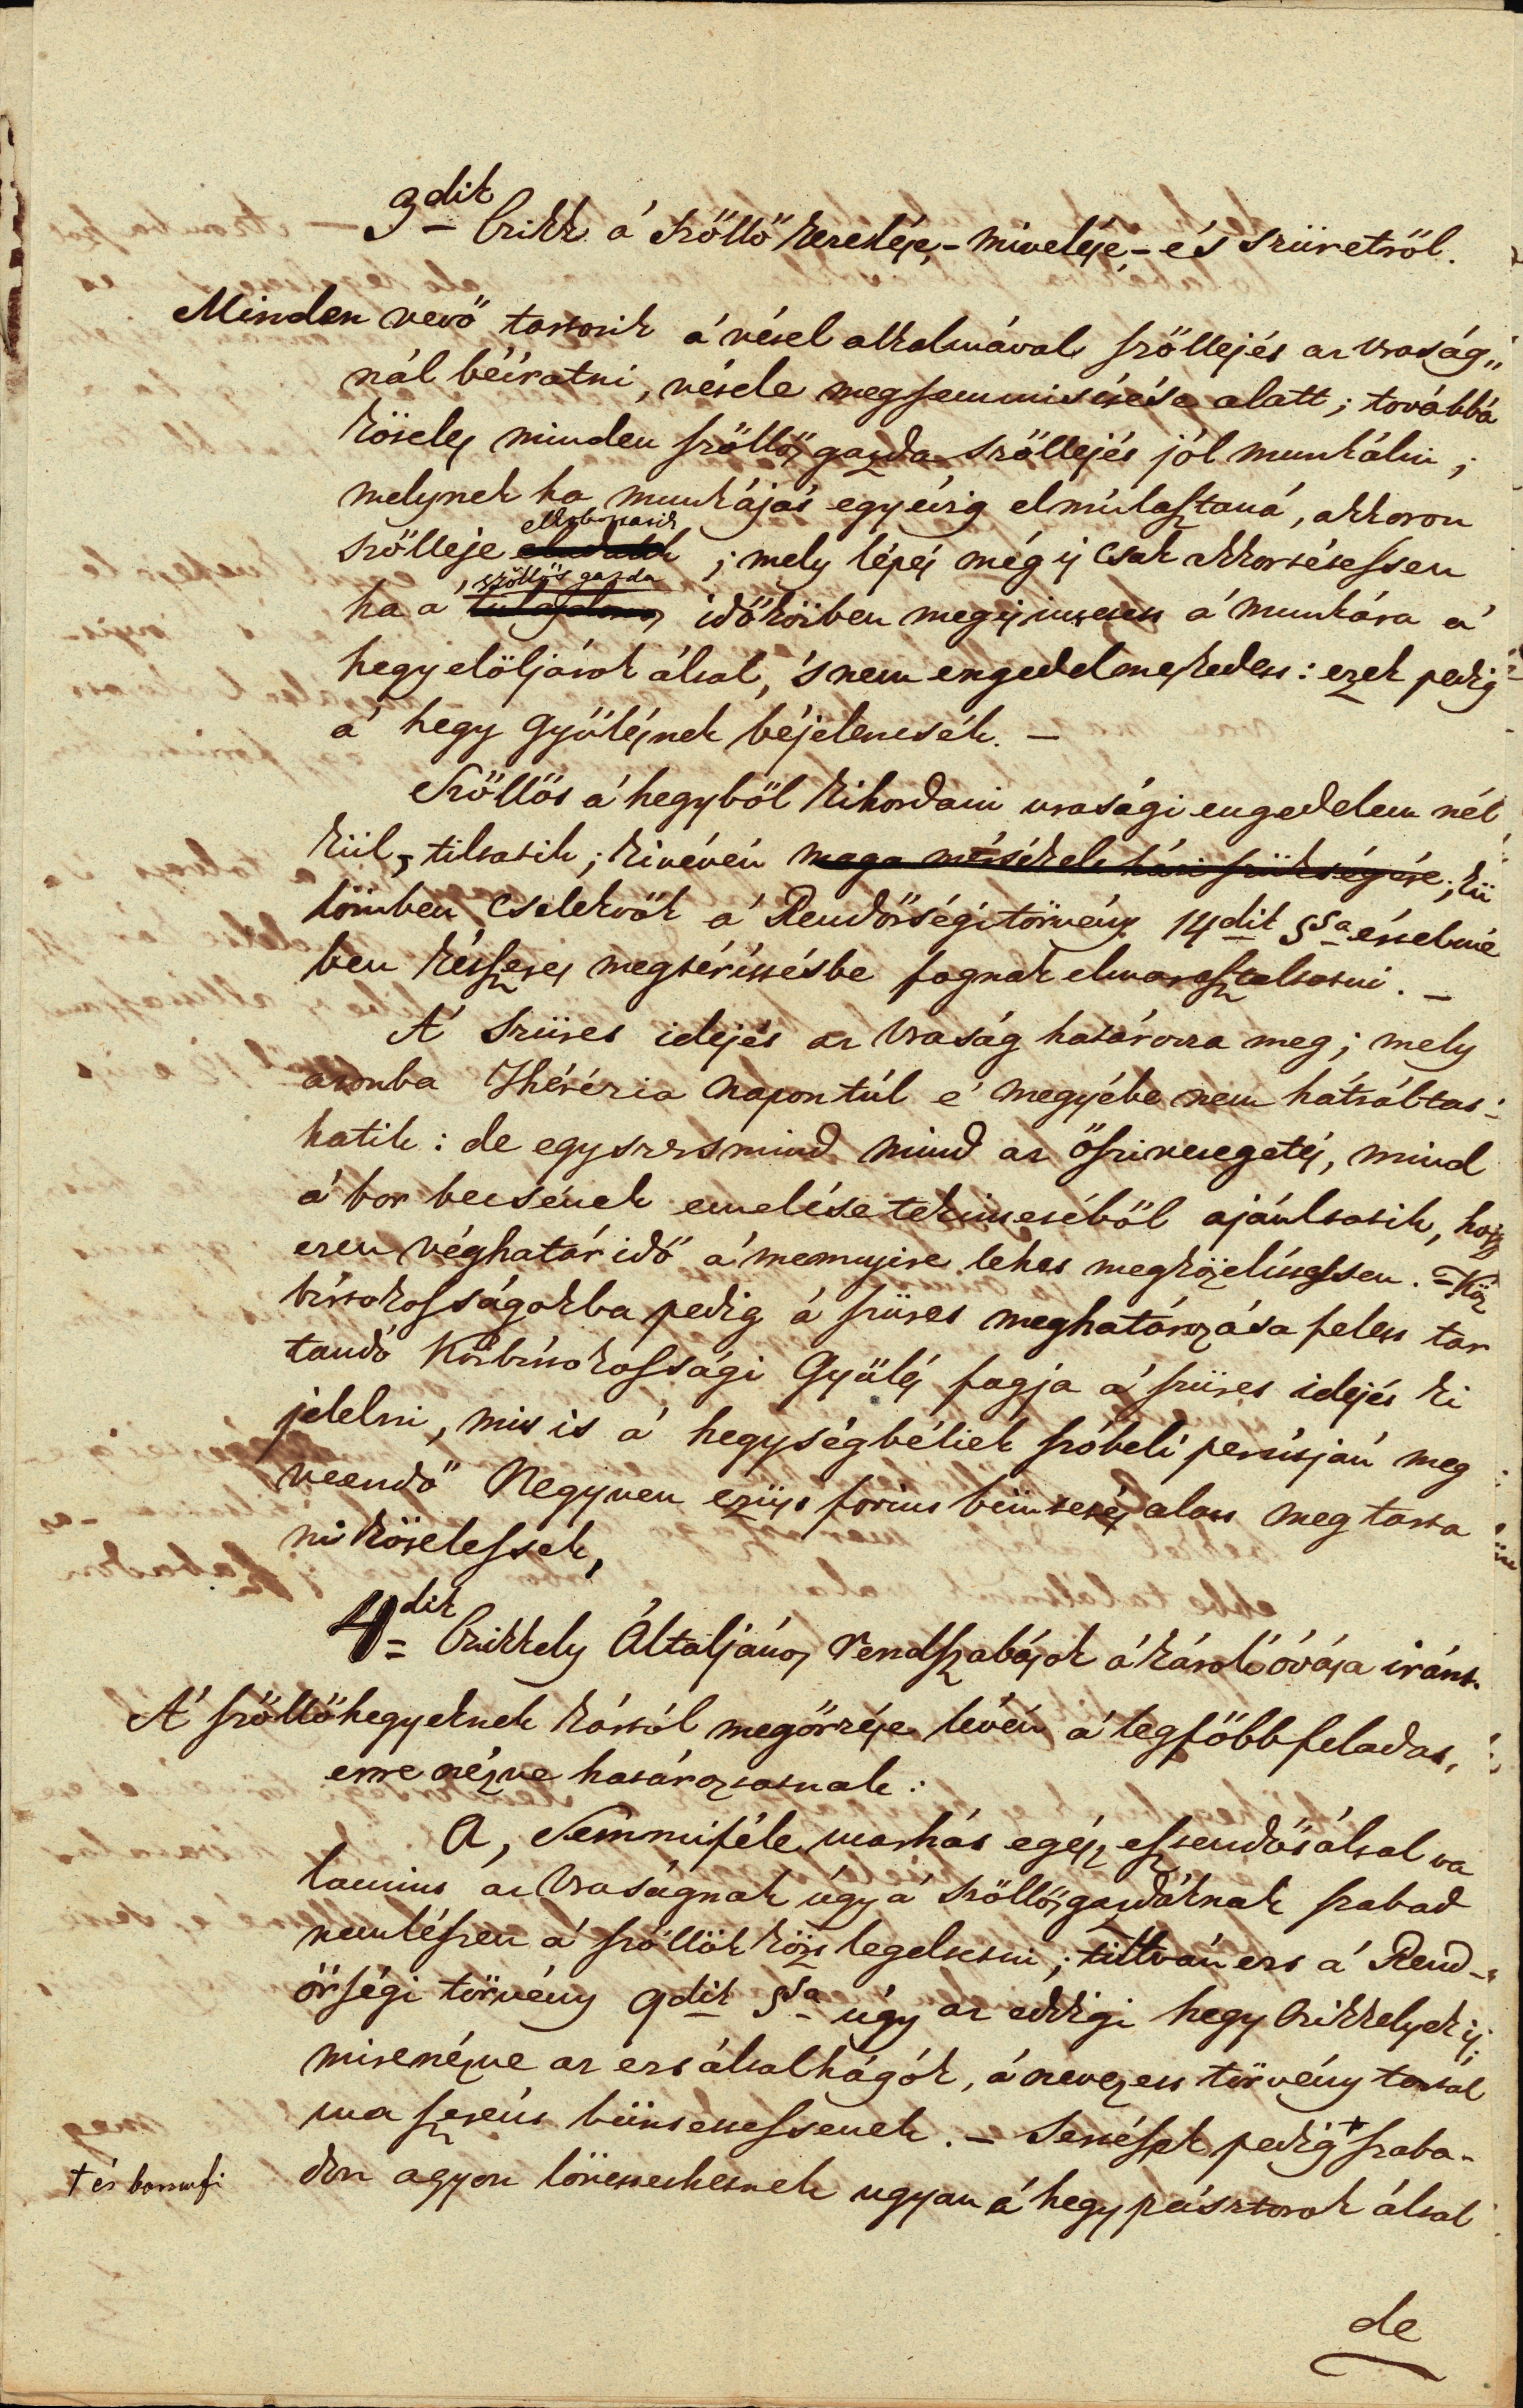 3dik Czikk a' Szőllő kezelése,- mivelése,- és szüretről.
Minden vevő tartozik a' vétel alkalmával szőllejét az Uraság„
nál béiratni, vétele megsemmisítése alatt; továbbá
köteles minden szőllős gazda szőllejét jól munkálni;
melynek ha munkáját egy évig elmúlasztaná, akkoron
szőlleje eladatik ; mely lépés még is csak akkor tétessen
ha a' szőllős gazda tulajdonos időközben meg is intetett a' munkára a'
hegy elöljárok által, 's nem engedelmeskedett: ezek pedig
a' hegy Gyűlésnek béjelentsék. –
Szőllőt a' hegyből kihordani urasági engedelem nél
kül, tiltatik; kivévén maga mérsékelt házi szükségére; kü
lömben cselekvők a' Rendőrségi törvény 14dik §sa értelmé
ben kétszeres megtérittésbe fognak elmarasztaltatni. –
A' Szüret idejét az Uraság határozza meg; mely
azomba Thérézia napon túl e' megyébe nem hátráltat-
hatik: de egyszersmind mind az őszi vetegetés, mind
a' bor becsének emelése tekintetéből ajánltatik, hogy
ezen véghatár idő a' mennyire lehet megközelíttessen. = Köz
birtokosságokba pedig a' szüret meghatározása felett tar
tandó Közbirtokossági Gyűlés fogja a' szüret idejét ki
jelelni, mit is a' hegységbéliek szóbeli perútján meg
veendő Negyven ezüst forint büntetés alatt meg tarta
ni köteleztetnek,
4dik Czikkely Általjános rendszabások a' károk óvása iránt.
A' szőllőhegyeknek kártól megőrzése lévén a' legfőbb feladat,
erre nézve határoztatnak:
A, Semmiféle marhát egész esztendőt által va
lamint az Uraságnak úgy a' szőllősgazdáknak szabad
nem lészen a' szőllők közt legeltetni; tiltván ezt a' Rend-
őrségi törvény 9dik §sa úgy az eddigi hegy Czikkelyek is;
mire nézve az ezt általhágók, a' nevezett törvény tartal
ma szerént büntettessenek. – Sertések pedig + szaba-
don agyon lövettethetnek ugyan a' hegy pásztorok által
+ és
de